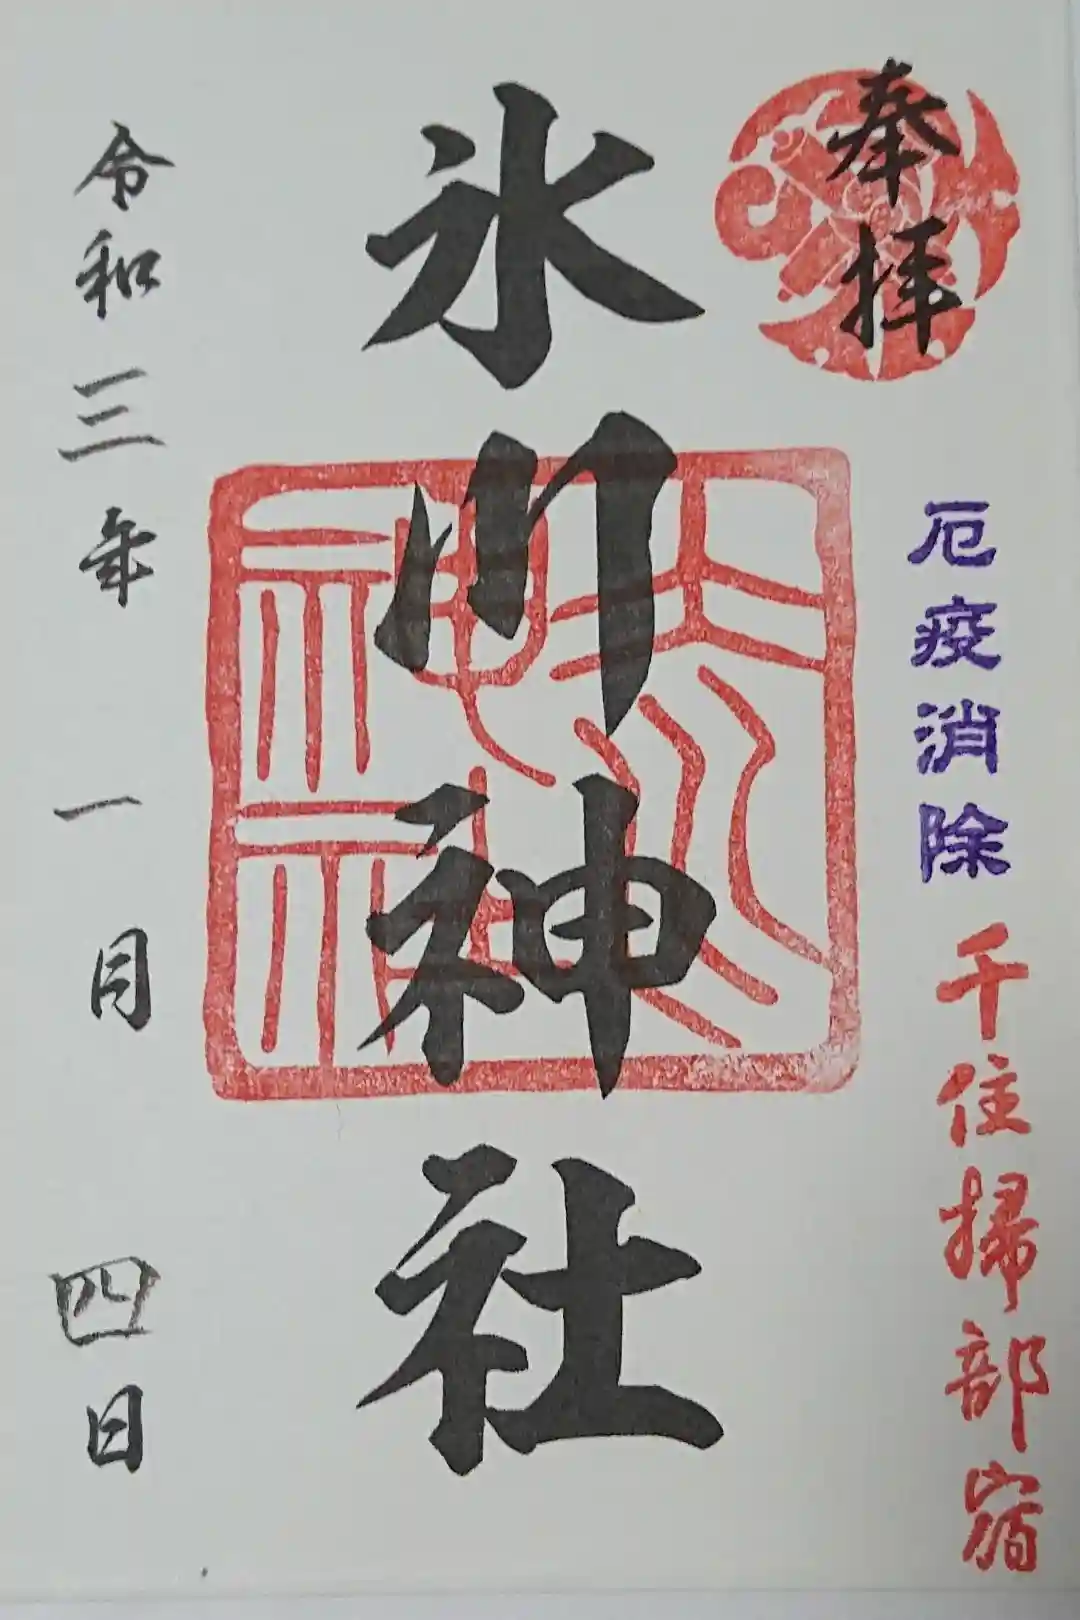 奉拝
厄疫消除 千住掃部宿
氷川神社
氷川
神社
令和三年 一月 四日